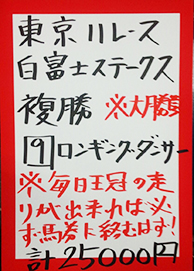 東京11レース
白富士ステークス
複勝 ※大勝負
9 ロンギングダンサー
※毎日王冠の走
りが出来れば必
ず馬券に絡むはず!
計25000円